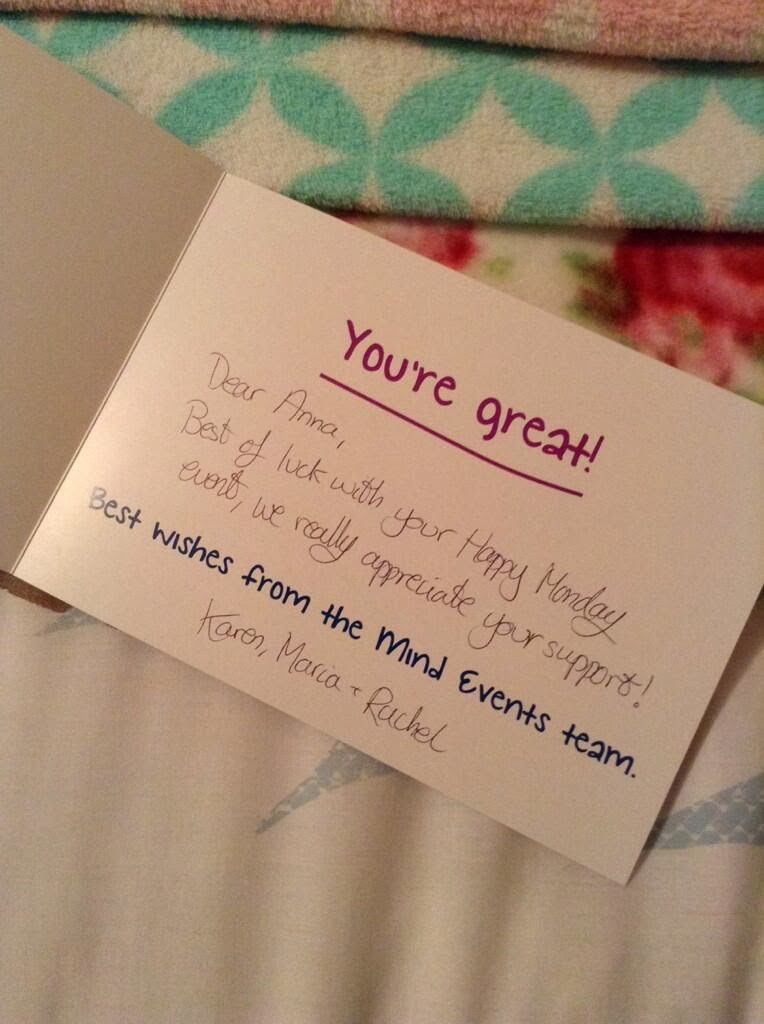 You're great!
Dear Anna,
Best of luck with your Happy Monday
event, we really appreciate your support!
Best wishes from the Mind Events team.
Karen, Maria + Rachel